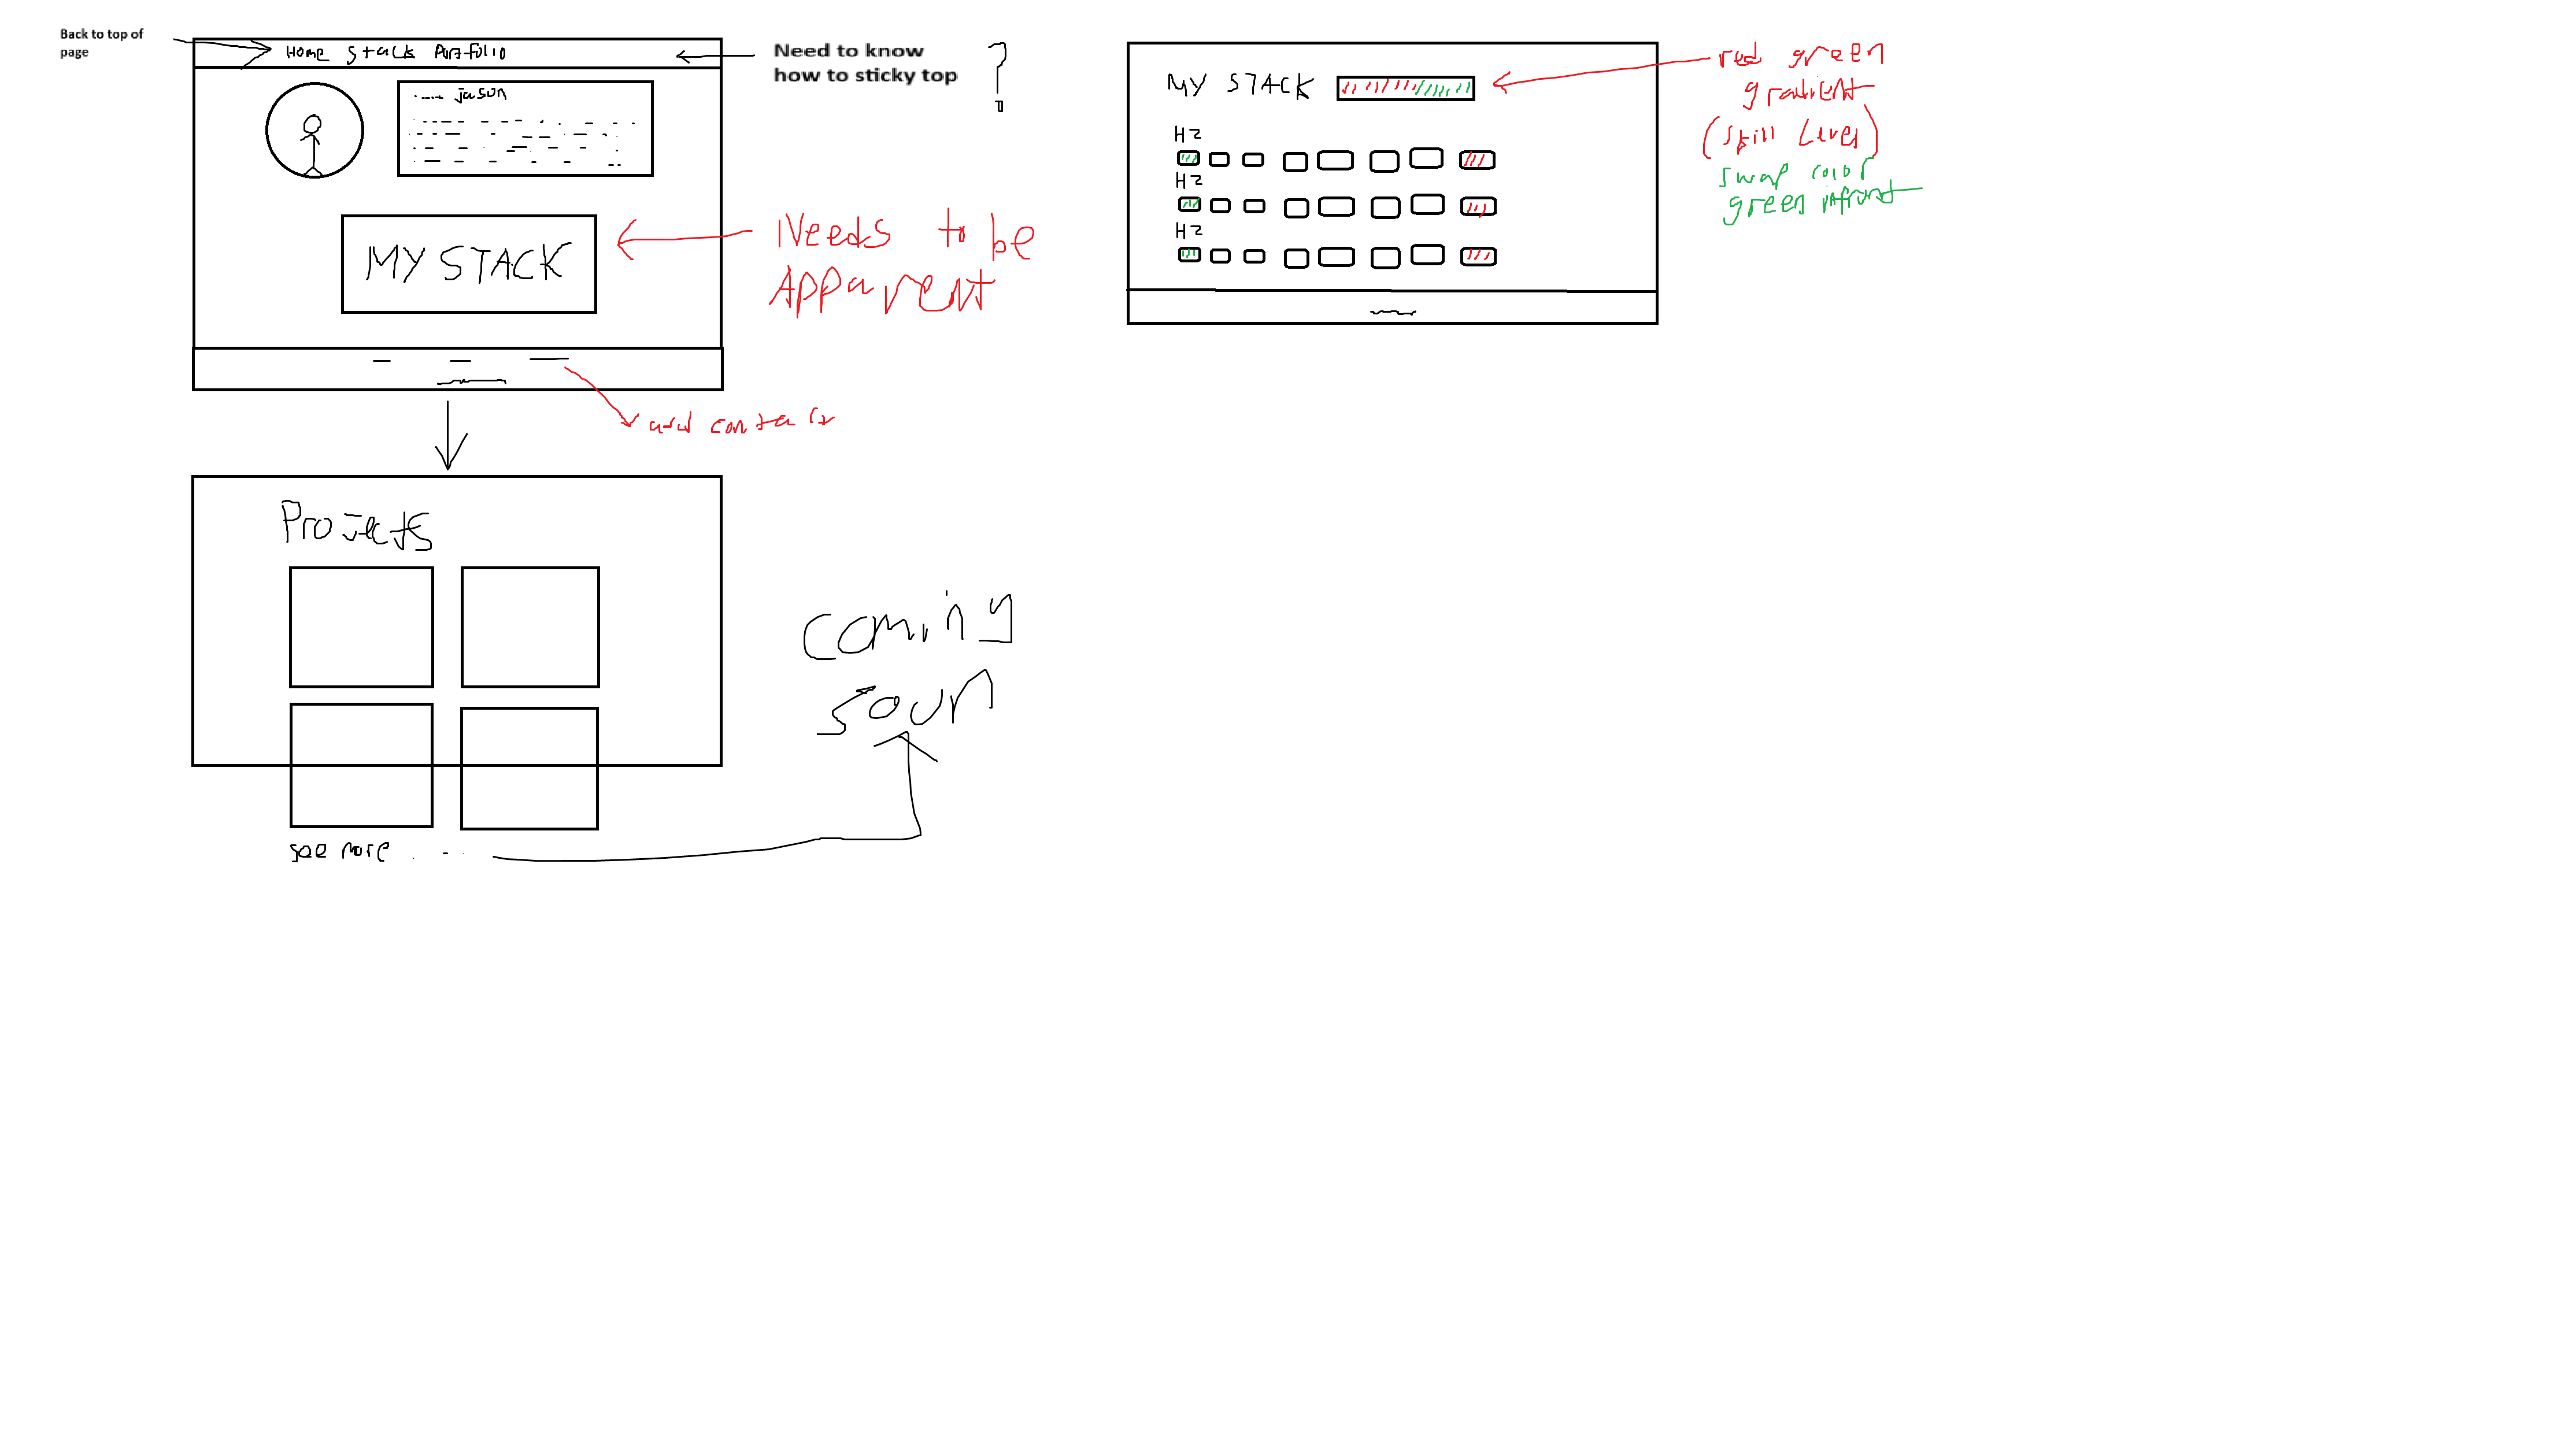 Back to top of
page
Home Stack Portfolio
Need to know
how to sticky top
?
jason
MY STACK
Needs to be
Apparent
add contact
Projects
see more ....
coming
soun
MY STACK
H2
H2
H2
red green
gradient
(skill level)
swap color
green